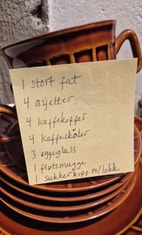 1 stort fat
4 asjetter
4 kaffekopper
4 kaffeskåler
3 eggeglass
1 fløtemugge
1 sukkerkopp m/lokk